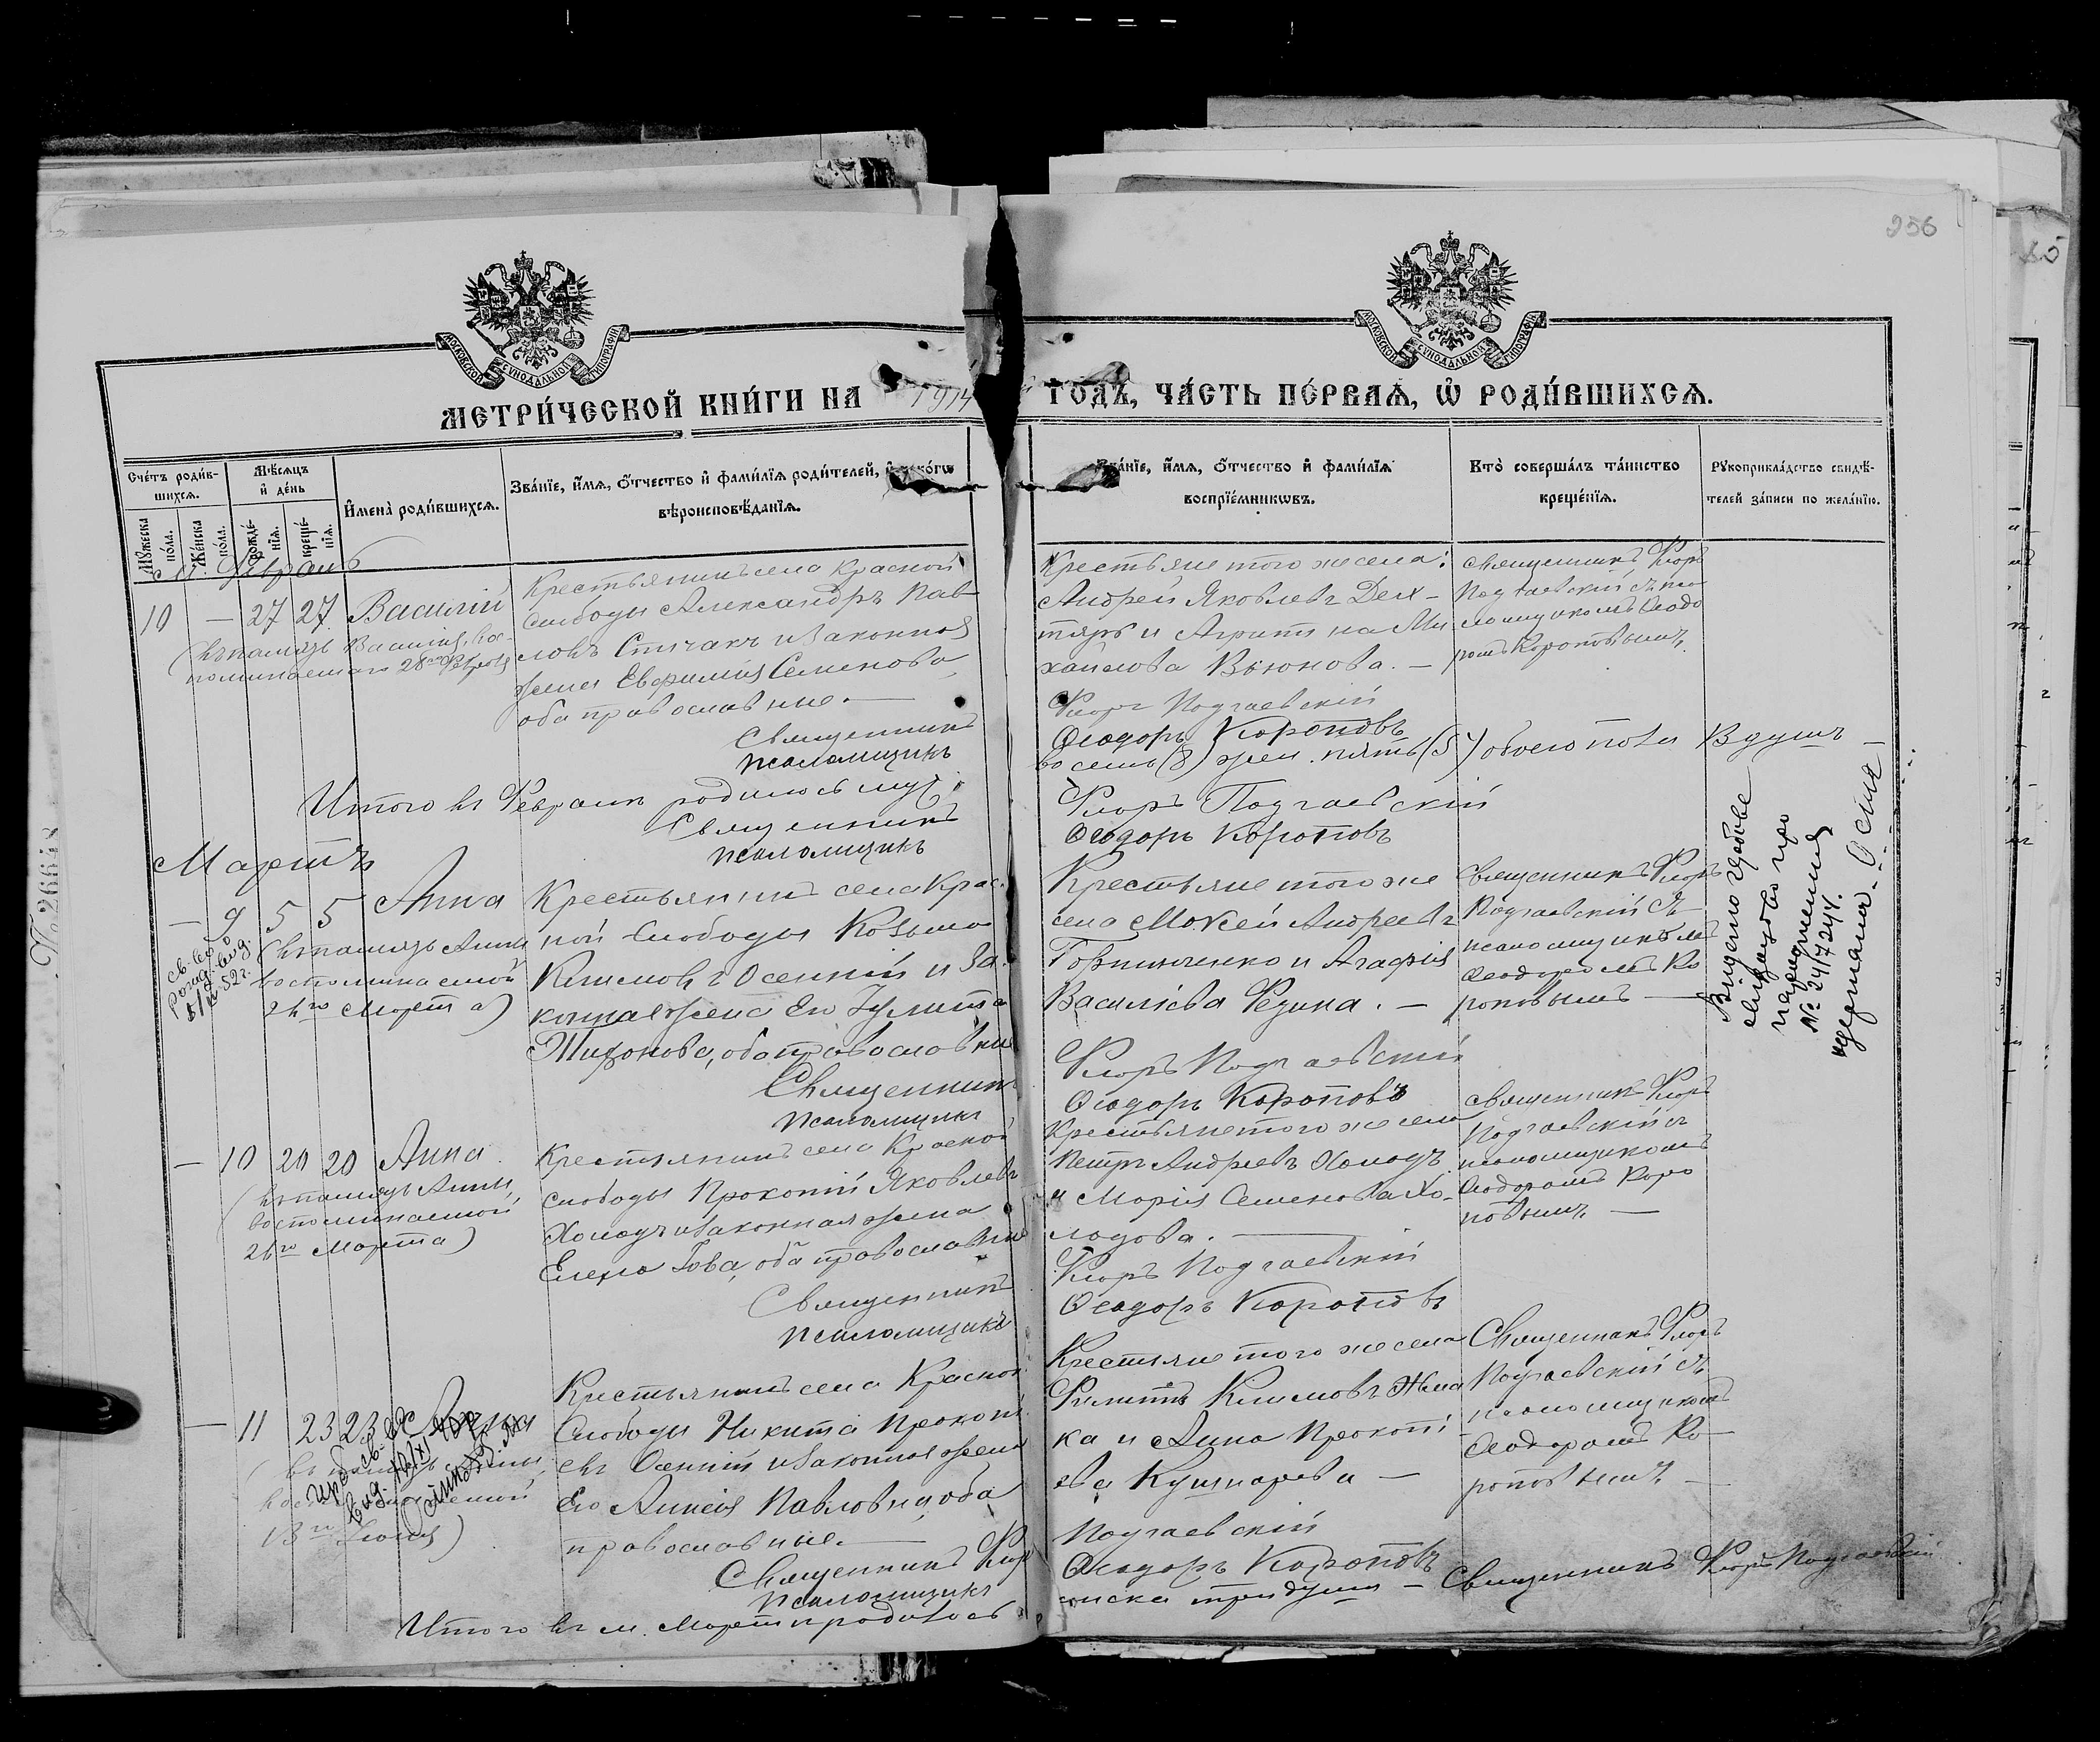 256
МОСКОВСКОЙ СѴНОДАЛЬНОЙ ТИПОГРАФІИ
МОСКОВСКОЙ СѴНОДАЛЬНОЙ ТИПОГРАФІИ
МЕТРИ́ЧЕСКОЙ КНИ́ГИ НА 1914 ГОДЪ, ЧА́СТЬ ПЕ́РВАѦ, Ѡ҆ РОДИ́ВШИХСѦ.
Сче́тъ роди́в-
шихсѧ.
Мꙋ́жеска по́ла.
Же́нска по́ла.
Мѣ́сѧцъ и҆ де́нь
рожде́-
нїѧ.
креще́-
нїѧ.
И҆мена̀ роди́вшихсѧ.
Зва́нїе, и҆́мѧ, ѻ҆́тчество и҆ фами́лїѧ роди́телей, и҆ како́гѡ
вѣроисповѣ́данїѧ.
Зва́нїе, и҆́мѧ, ѻ҆́тчество и҆ фами́лїѧ
воспрїе́мникѡвъ.
Кто̀ соверша́лъ та́инство
креще́нїѧ.
Рꙋкоприкла́дство свидѣ́-
телей за́писи по жела́нїю.
10 — 27 27 Василій
(въ память Василія, вос-
поминаемаго 28го Февраля
Крестьянинъ села Красной
Слободы Александръ Пав-
ловъ Спичакъ и законная
жена Евфимія Семенова,
оба православные. —
Священникъ
псаломщикъ
Крестьяне того же села:
Андрей Яковлевъ Дех-
тярь и Агрипина Ми
хайлова Вьюнова. —
Флоръ Подгаевскій
Ѳеодоръ Коропов
Священникъ Флоръ
Подгаевскій съ пса
ломщикомъ Ѳеодо
ромъ Короповымъ.
Итого въ Февралѣ родилось муж.
восемь (8) жен. пять (5) обоего пола
Священникъ
псаломщикъ
Флоръ Подгаевскій
Ѳеодоръ Короповъ
Мартъ
— 9 5 5 Анна
(въ память Анны
воспоминаемой
26го Марта)
Крестьянинъ села Крас-
ной Слободы Козьма
Климовъ Осенній и за-
конная жена его Іулитта
Тихонова, оба православные
Священникъ
псаломщикъ
Крестьяне того же
села Мокей Андреевъ
Горпинченко и Агафія
Василіева Редина. —
Флоръ Подгаевскій
Ѳеодоръ Короповъ
Священникъ Флоръ
Подгаевскій съ
псаломщикомъ
Ѳеодоромъ Ко
роповымъ —
Видано
свидоцтво про
народження
№ 247244.
одержала
— 10 20 20 Анна
(въ память Анны,
воспоминаемой
26го Марта)
Крестьянинъ села Красной
слободы Прокопій Яковлевъ
Холодъ и законная жена
оба православные
Священникъ
псаломщикъ
Крестьяне того же села
Петръ Андреевъ Холодъ
и Марія Семенова Хо-
лодова. —
Флоръ Подгаевскій
Ѳеодоръ Короповъ
Священникъ Флоръ
Подгаевскій съ
псаломщикомъ
Ѳеодоромъ Коро
повымъ. —
— 11 23 23
Крестьянинъ села Красной
Слободы Никита Прокопі
евъ Осенній и законная жена
его Анисія Павловна, оба
православные. —
Священникъ Флоръ
псаломщикъ
Крестьяне того же села
Филиппъ Климовъ
ка и Анна Прокопі-
ева Кушнарева —
Подгаевскій
Ѳеодоръ Короповъ
Священникъ Флоръ
Подгаевскій съ
псаломщикомъ
Ѳеодоромъ Ко-
роповымъ. —
Итого въ м. Мартѣ родилось
женска три души — Священникъ Флоръ Подгаевскій